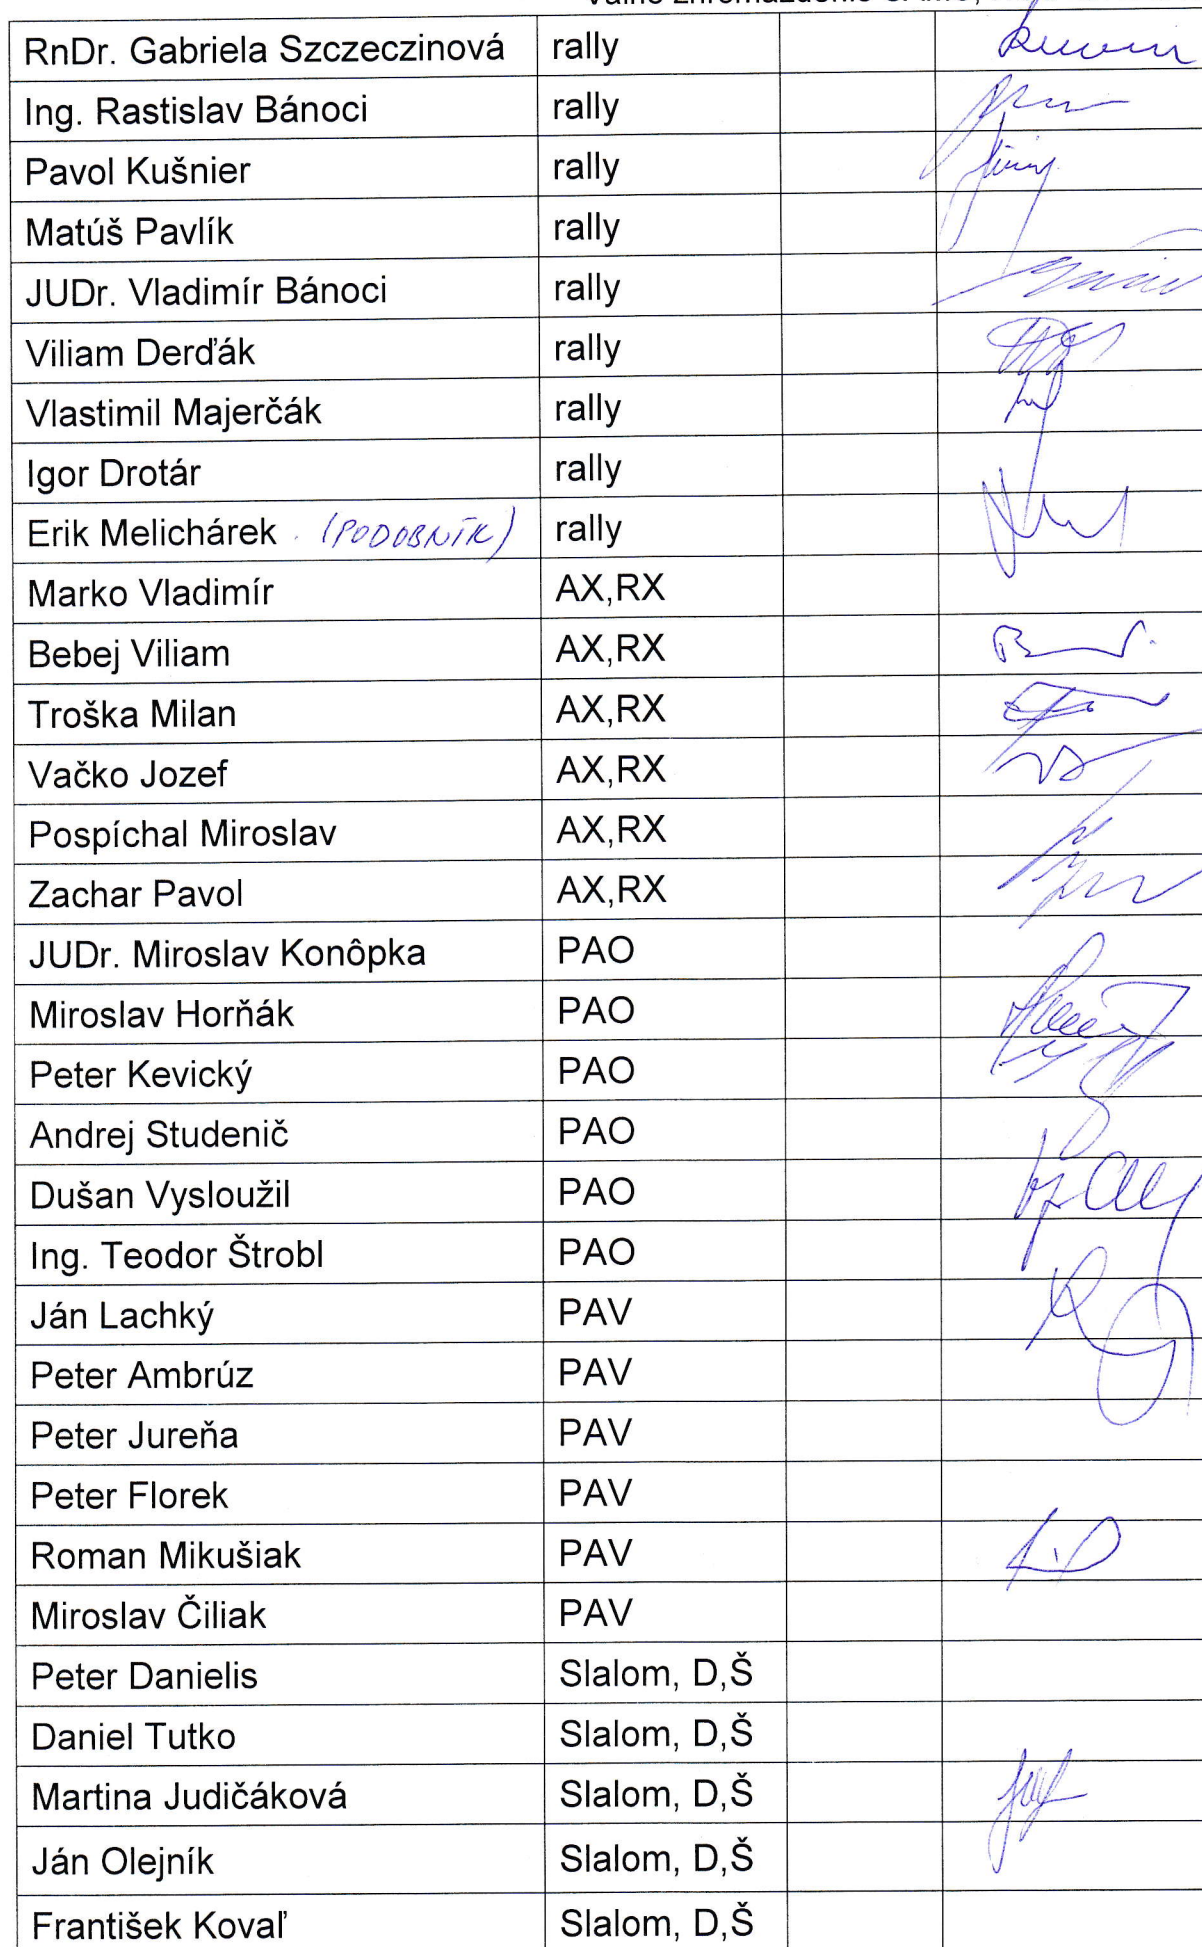 RnDr. Gabriela Szczeczinová rally
Ing. Rastislav Bánoci rally
Pavol Kušnier rally
Matúš Pavlík rally
JUDr. Vladimír Bánoci rally
Viliam Derďák rally
Vlastimil Majerčák rally
Igor Drotár rally
Erik Melichárek (PODOBNÍK) rally
Marko Vladimír AX,RX
Bebej Viliam AX,RX
Troška Milan AX,RX
Vačko Jozef AX,RX
Pospíchal Miroslav AX,RX
Zachar Pavol AX,RX
JUDr. Miroslav Konôpka PAO
Miroslav Horňák PAO
Peter Kevický PAO
Andrej Studenič PAO
Dušan Vysloužil PAO
Ing. Teodor Štrobl PAO
Ján Lachký PAV
Peter Ambrúz PAV
Peter Jureňa PAV
Peter Florek PAV
Roman Mikušiak PAV
Miroslav Čiliak PAV
Peter Danielis Slalom, D,Š
Daniel Tutko Slalom, D,Š
Martina Judičáková Slalom, D,Š
Ján Olejník Slalom, D,Š
František Kovaľ Slalom, D,Š